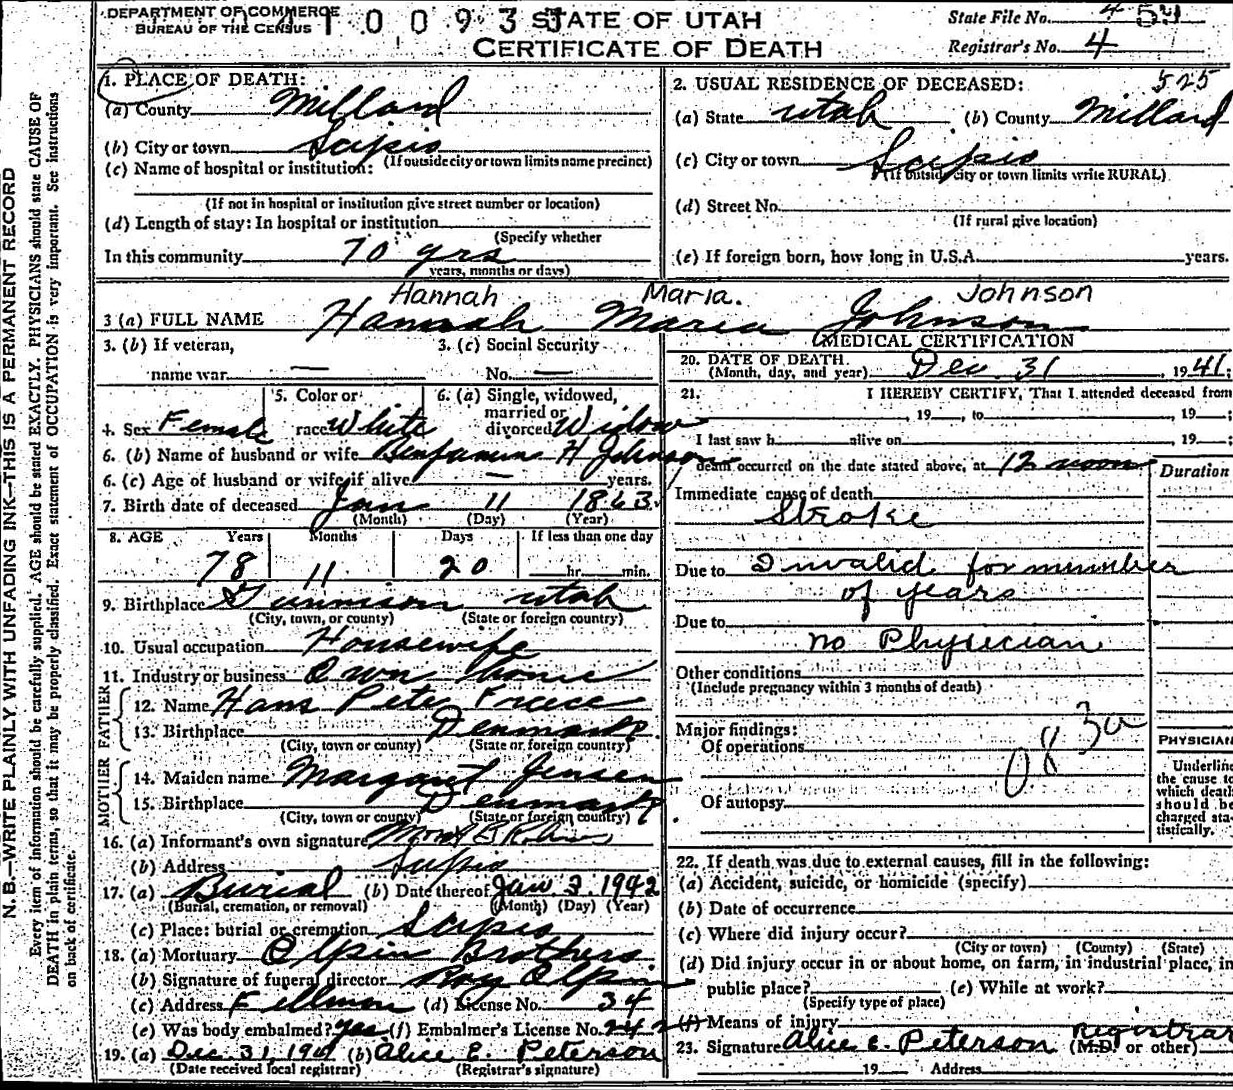 DEPARTMENT OF COMMERCE
BUREAU OF THE CENSUS
STATE OF UTAH
CERTIFICATE OF DEATH
State File No. 4
Registrar's No. 4
1. PLACE OF DEATH:
(a) County Millard
(b) City or town Scipio
(If outside city or town limits name precinct)
(c) Name of hospital or institution:
(If not in hospital or institution give street number or location)
(d) Length of stay: In hospital or institution
(Specify whether
In this community 70 yrs
years, months or days)
525
2. USUAL RESIDENCE OF DECEASED:
(a) State Utah (b) County Millard
(c) City or town Scipio
(If outside city or town limits write RURAL)
(d) Street No.
(If rural give location)
(e) If foreign born, how long in U.S.A. years.
Hannah Maria. Johnson
3 (a) FULL NAME Hannah Maria Johnson
3. (b) If veteran,
name war —
3. (c) Social Security
No. —
4. Sex Female
5. Color or
race White
6. (a) Single, widowed,
married or
divorced Widow
6. (b) Name of husband or wife Benjamin H Johnson
6. (c) Age of husband or wife if alive — years.
7. Birth date of deceased Jan 11 1863
(Month) (Day) (Year)
8. AGE Years Months Days If less than one day
78 11 20 hr. min.
9. Birthplace Gunnison Utah
(City, town, or county) (State or foreign country)
10. Usual occupation Housewife
11. Industry or business Own home
FATHER
12. Name Hans Peter Freece
13. Birthplace Denmark
(City, town or county) (State or foreign country)
MOTHER
14. Maiden name Margaret Jensen
15. Birthplace Denmark
(City, town or county) (State or foreign country)
16. (a) Informant's own signature
(b) Address Scipio
17. (a) Burial (b) Date thereof Jan 3 1942
(Burial, cremation, or removal) (Month) (Day) (Year)
(c) Place: burial or cremation Scipio
18. (a) Mortuary Olpin Brothers
(b) Signature of funeral director Roy Olpin
(c) Address Fillmore (d) License No. 34
(e) Was body embalmed? Yes (f) Embalmer's License No. 242
19. (a) Dec. 31, 1941 (b) Alice E. Peterson
(Date received local registrar) (Registrar's signature)
MEDICAL CERTIFICATION
20. DATE OF DEATH
(Month, day, and year) Dec. 31, 1941;
21. I HEREBY CERTIFY, That I attended deceased from
, 19 , to , 19 ;
I last saw h alive on , 19 ;
death occurred on the date stated above, at 12 noon
Duration
Immediate cause of death
Stroke
Due to Invalid for number
of years
Due to
no Physician
Other conditions
(Include pregnancy within 3 months of death)
Major findings:
Of operations
083a
Of autopsy
PHYSICIAN
Underline
the cause to
which death
should be
charged sta-
tistically.
22. If death was due to external causes, fill in the following:
(a) Accident, suicide, or homicide (specify)
(b) Date of occurrence
(c) Where did injury occur?
(City or town) (County) (State)
(d) Did injury occur in or about home, on farm, in industrial place, in
public place? (e) While at work?
(Specify type of place)
(f) Means of injury
Registrar
23. Signature Alice E. Peterson (M.D. or other)
19 Address
N. B.—WRITE PLAINLY WITH UNFADING INK—THIS IS A PERMANENT RECORD
Every item of information should be carefully supplied. AGE should be stated EXACTLY. PHYSICIANS should state CAUSE OF
DEATH in plain terms, so that it may be properly classified. Exact statement of OCCUPATION is very important. See instructions
on back of certificate.